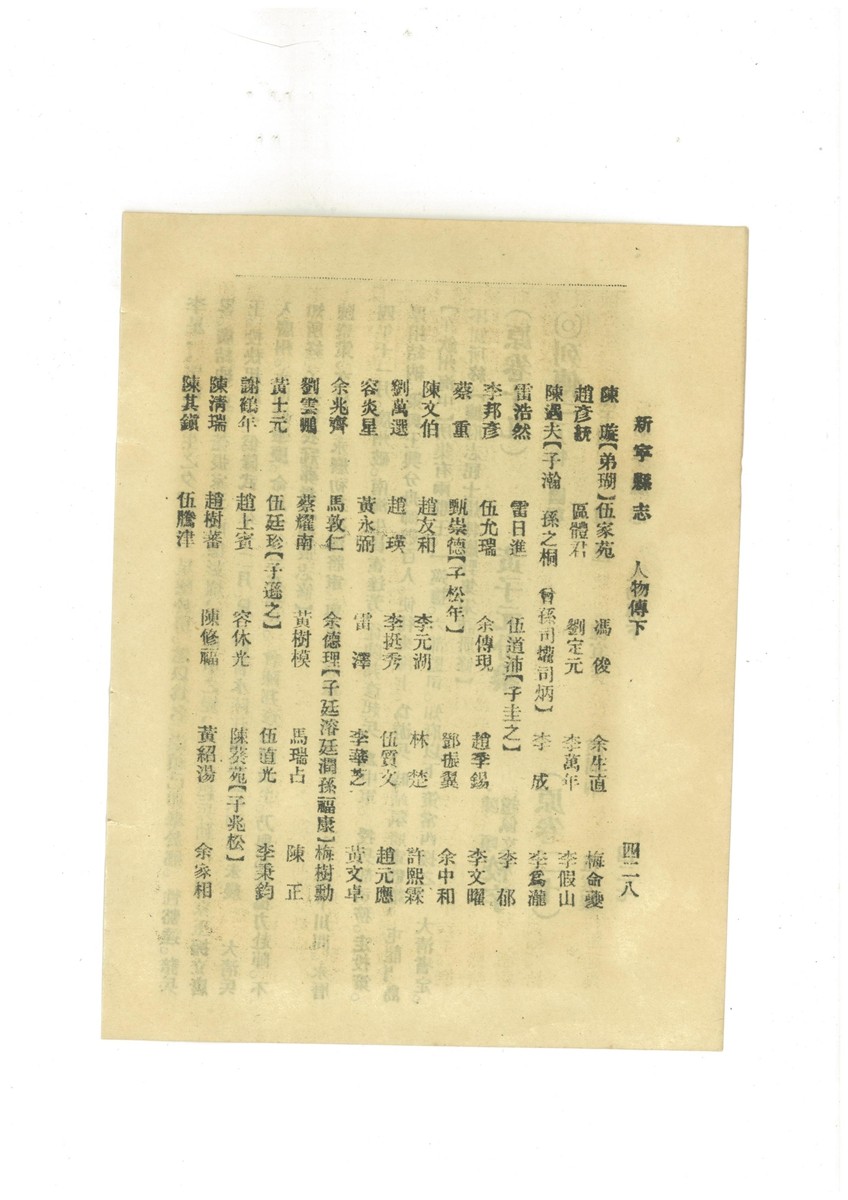 新寧縣志　人物傳下　四二八
陳　璇【弟瑚】伍家苑　馮　俊　余生直　梅命夔
趙彥統　區體君　劉定元　李萬年　李假山
陳遇夫【子瀚　孫之桐　曾孫司爟司炳】李　成　李爲瀧
雷浩然　雷日進　伍道沛【子圭之】　李　郁
李邦彥　伍允瑞　余傳現　趙季錫　李文曜
蔡　重　甄崇德【子松年】　鄧振翼　余中和
陳文伯　趙友和　李元湖　林　楚　許熙霖
劉萬選　趙　瑛　李挺秀　伍質文　趙元應
容炎星　黃永弼　雷　澤　李華芝　黃文卓
余兆齊　馬敦仁　余德理【子廷溶廷潤孫福康】梅樹勳
劉雲鵬　蔡耀南　黃樹模　馬瑞占　陳　正
黃士元　伍廷珍【子遜之】　伍道光　李秉鈞
謝鶴年　趙上賓　容休光　陳葵苑【子兆松】
陳清瑞　趙樹蕃　陳修福　黃紹湯　余家相
陳其鎭　伍騰津